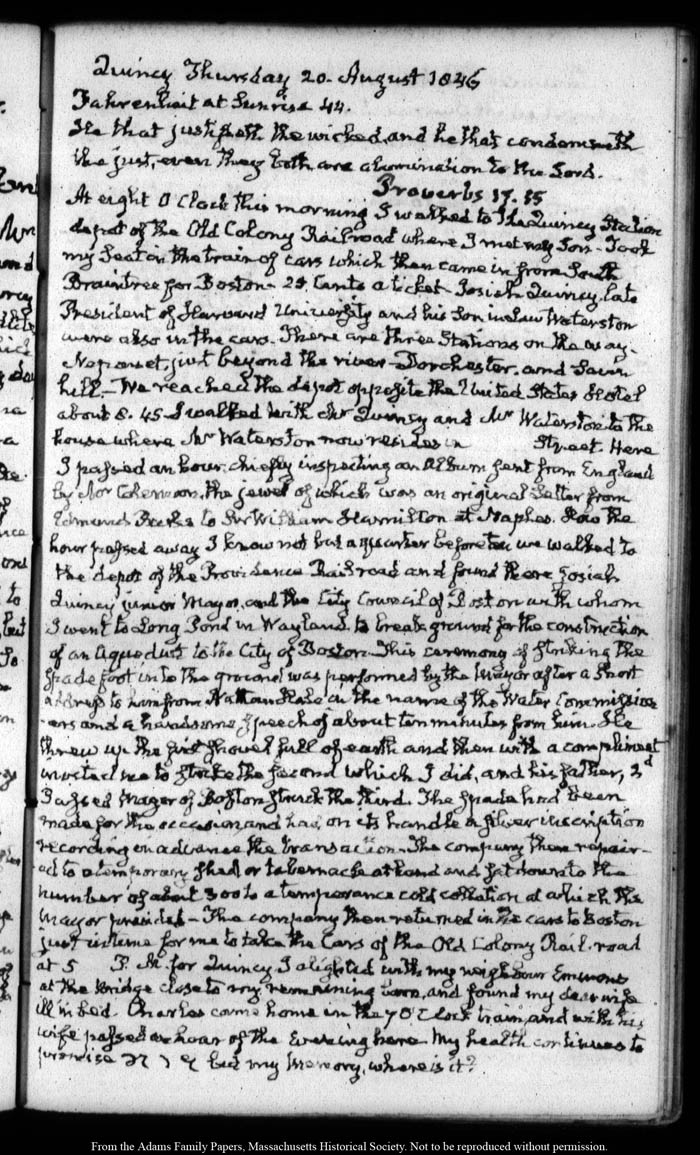 Quincy Thursday 20. August 1846
Fahrenheit at Sunrise 44.
He that justifieth the wicked, and he that condemneth
the just, even they both are abomination to the Lord.
Proverbs 17. 15
At eight O'Clock this morning I walked to the Quincy Station
depot of the Old Colony Railroad where I met my Son - Took
my Seat in the train of cars which then came in from South
Braintree for Boston - 25 Cents a ticket - Josiah Quincy, late
President of Harvard University and his Son in law Waterston
were also in the cars - There are three Stations on the way -
Neponset, just beyond the river - Dorchester, and Savin
hill - We reached the depot opposite the United States Hotel
about 8. 45 I walked with Mr Quincy and Mr Waterston to the
house where Mr Waterston now resides in Street. Here
I passed an hour, chiefly inspecting an Album sent from England
by the jewel of which was an original Letter from
Edmund Burke to Sir William Hamilton at Naples. How the
hour passed away I know not but a quarter before ten we walked to
the depot of the Providence Railroad and found there Josiah
Quincy junior Mayor, and the City Council of Boston with whom
I went to Long Pond in Wayland to break ground for the construction
of an Aqueduct to the City of Boston. This ceremony of striking the
spade foot into the ground was performed by the Mayor after a short
address to him from Nathan Hale in the name of the Water Commission
-ers and a handsome speech of about ten minutes from him. He
threw up the first shovel full of earth and then with a compliment
invited me to strike the second which I did, and his father, 2d
Mayor of Boston struck the third. The spade had been
made for the occasion and had on its handle a silver inscription
recording in advance the transaction - The company then repair-
ed to a temporary shed or tabernacle at hand and sat down to the
number of about 300 to a temperance cold collation at which the
Mayor presided - The company then returned in the cars to Boston
just in time for me to take the Cars of the Old Colony Rail-road
at 5 P. M. for Quincy. I alighted with my neighbour Emmons
at the bridge close to my remaining barn, and found my dear wife
ill in bed. Charles came home in the 7 O'Clock train, and with his
wife passed an hour of the Evening here. My health continues to
but my Memory, where is it?
From the Adams Family Papers, Massachusetts Historical Society. Not to be reproduced without permission.